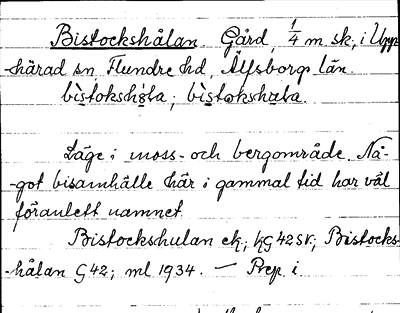 Bistockshålan. Gård, 1/4 m sk, i Upp-
-härad sn Flundre hd, Älfsborgs län.
bìstòkshɷ̀la; bìstɷkshɷla.
Läge i moss- och bergområde. Nå-
-got bisamhälle här i gammal tid har väl
föranlett namnet.
Bistockshulan ek; kG 42 sv.; Bistocks-
-hålan G 42; ml 1934. — Prep. i